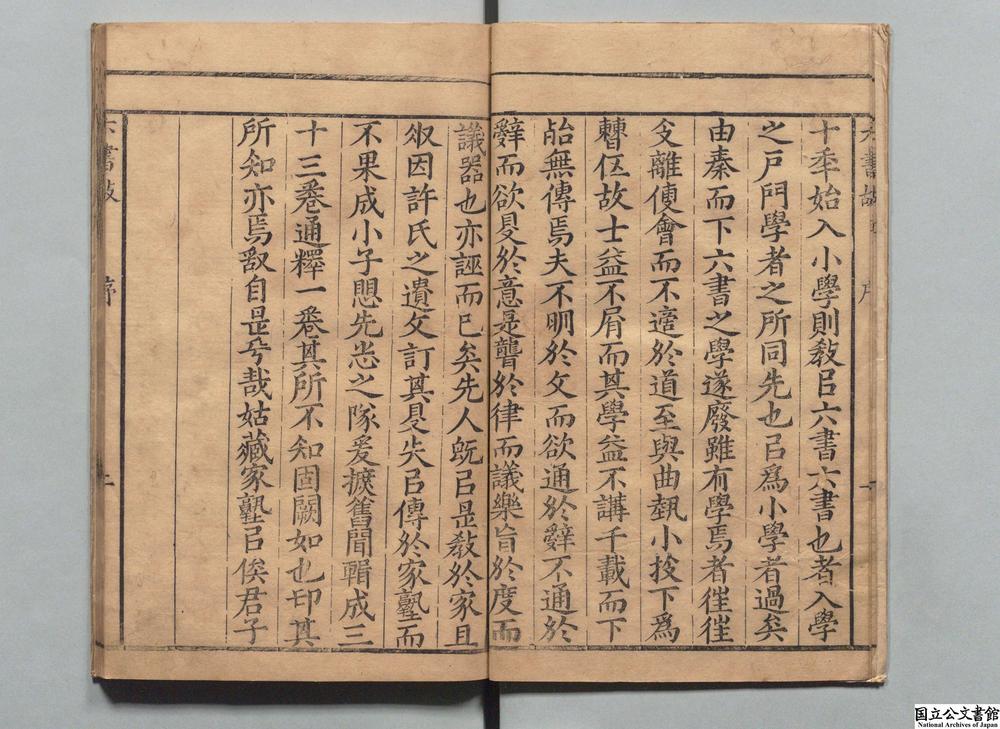 十秊始入小學則敎㠯六書六書也者入學
之戸門學者之所同先也㠯爲小學者過矣
由秦而下六書之學遂廢雖有學焉者徃徃
支離傅會而不適於道至與曲埶小技下爲
瞽伍故士益不屑而其學益不講千載而下
殆無傳焉夫不明於文而欲通於辤不通於
辤而欲㝵於意是聾於律而議樂盲於度而
議器也亦誣而已矣先人旣㠯是敎於家且
將因許氏之遺文訂其㝵失㠯傳於家塾而
不果成小子懼先志之隊爰摭舊聞輯成三
十三卷通釋一卷其所不知固闕如也卬其
所知亦焉敢自是兮哉姑藏家塾㠯俟君子
六書故
序
二
六書故
序
一
国立公文書館
National Archives of Japan